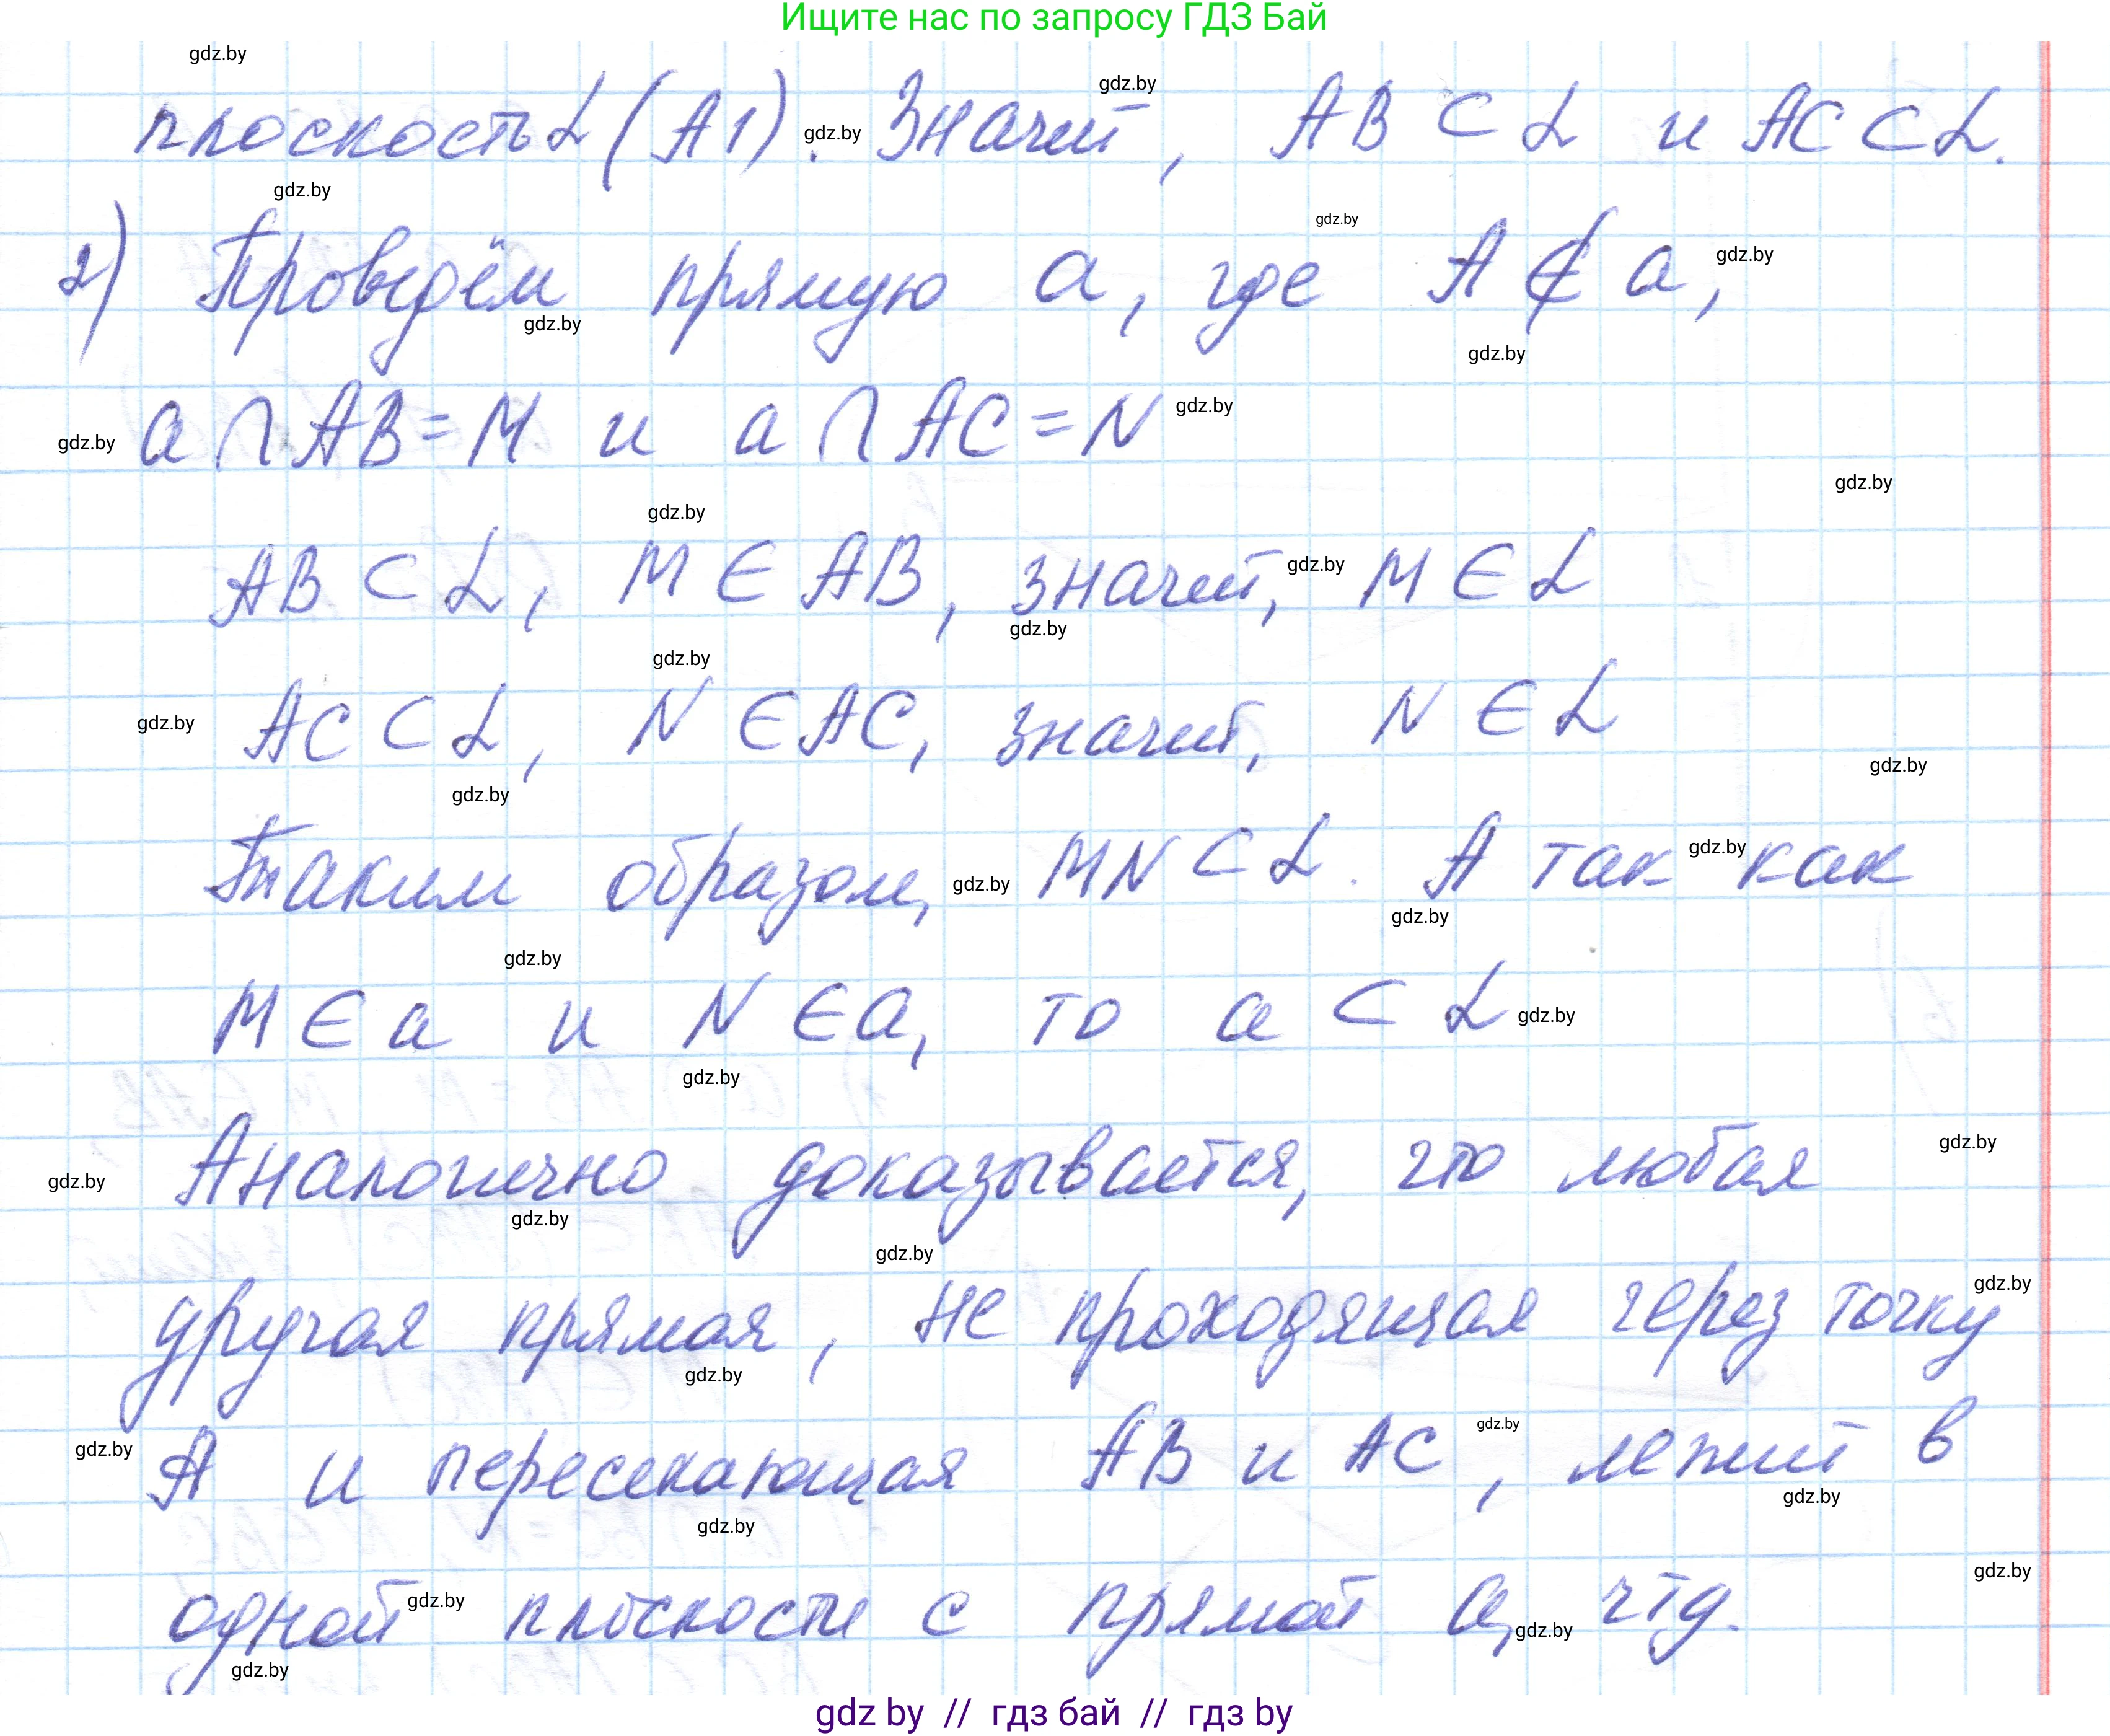 Ищите нас по запросу ГДЗ Бай
плоскость α (А1). Значит, AB ⊂ α и AC ⊂ α.
2) Проведём прямую a, где A ∉ a,
a ∩ AB = M и a ∩ AC = N
AB ⊂ α, M ∈ AB, значит, M ∈ α
AC ⊂ α, N ∈ AC, значит, N ∈ α
Таким образом, MN ⊂ α. А так как
M ∈ a и N ∈ a, то a ⊂ α
Аналогично доказывается, что любая
другая прямая, не проходящая через точку
A и пересекающая AB и AC, лежит в
одной плоскости с прямой a, чтд.
gdz by // гдз бай // гдз by